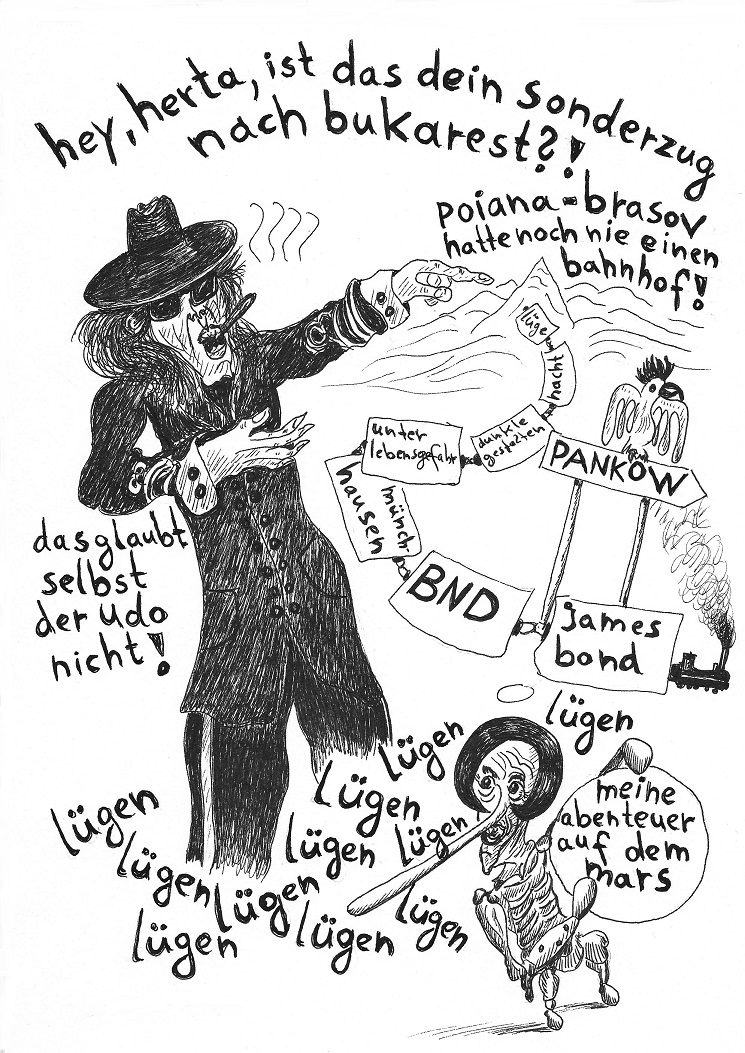 hey, herta, ist das dein sonderzug
nach bukarest?!
poiana-brasov
hatte noch nie einen
bahnhof!
lüge
nacht
dunkle
gestalten
unter
lebensgefahr
münch
hausen
BND
james
bond
PANKOW
das glaubt
selbst
der udo
nicht!
lügen
lügen
lügen
lügen
lügen
lügen
lügen
lügen
lügen
lügen
lügen
meine
abenteuer
auf dem
mars